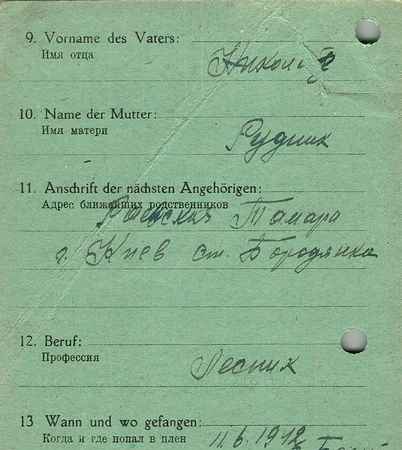 9. Vorname des Vaters:
Имя отца
Николай
10. Name der Mutter:
Имя матери
Рудник
11. Anschrift der nächsten Angehörigen:
Адрес ближайших родственников
Тамара
г. Киев ст. Бородянка
12. Beruf:
Профессия
Лесник
13 Wann und wo gefangen:
Когда и где попал в плен
11.6.1942